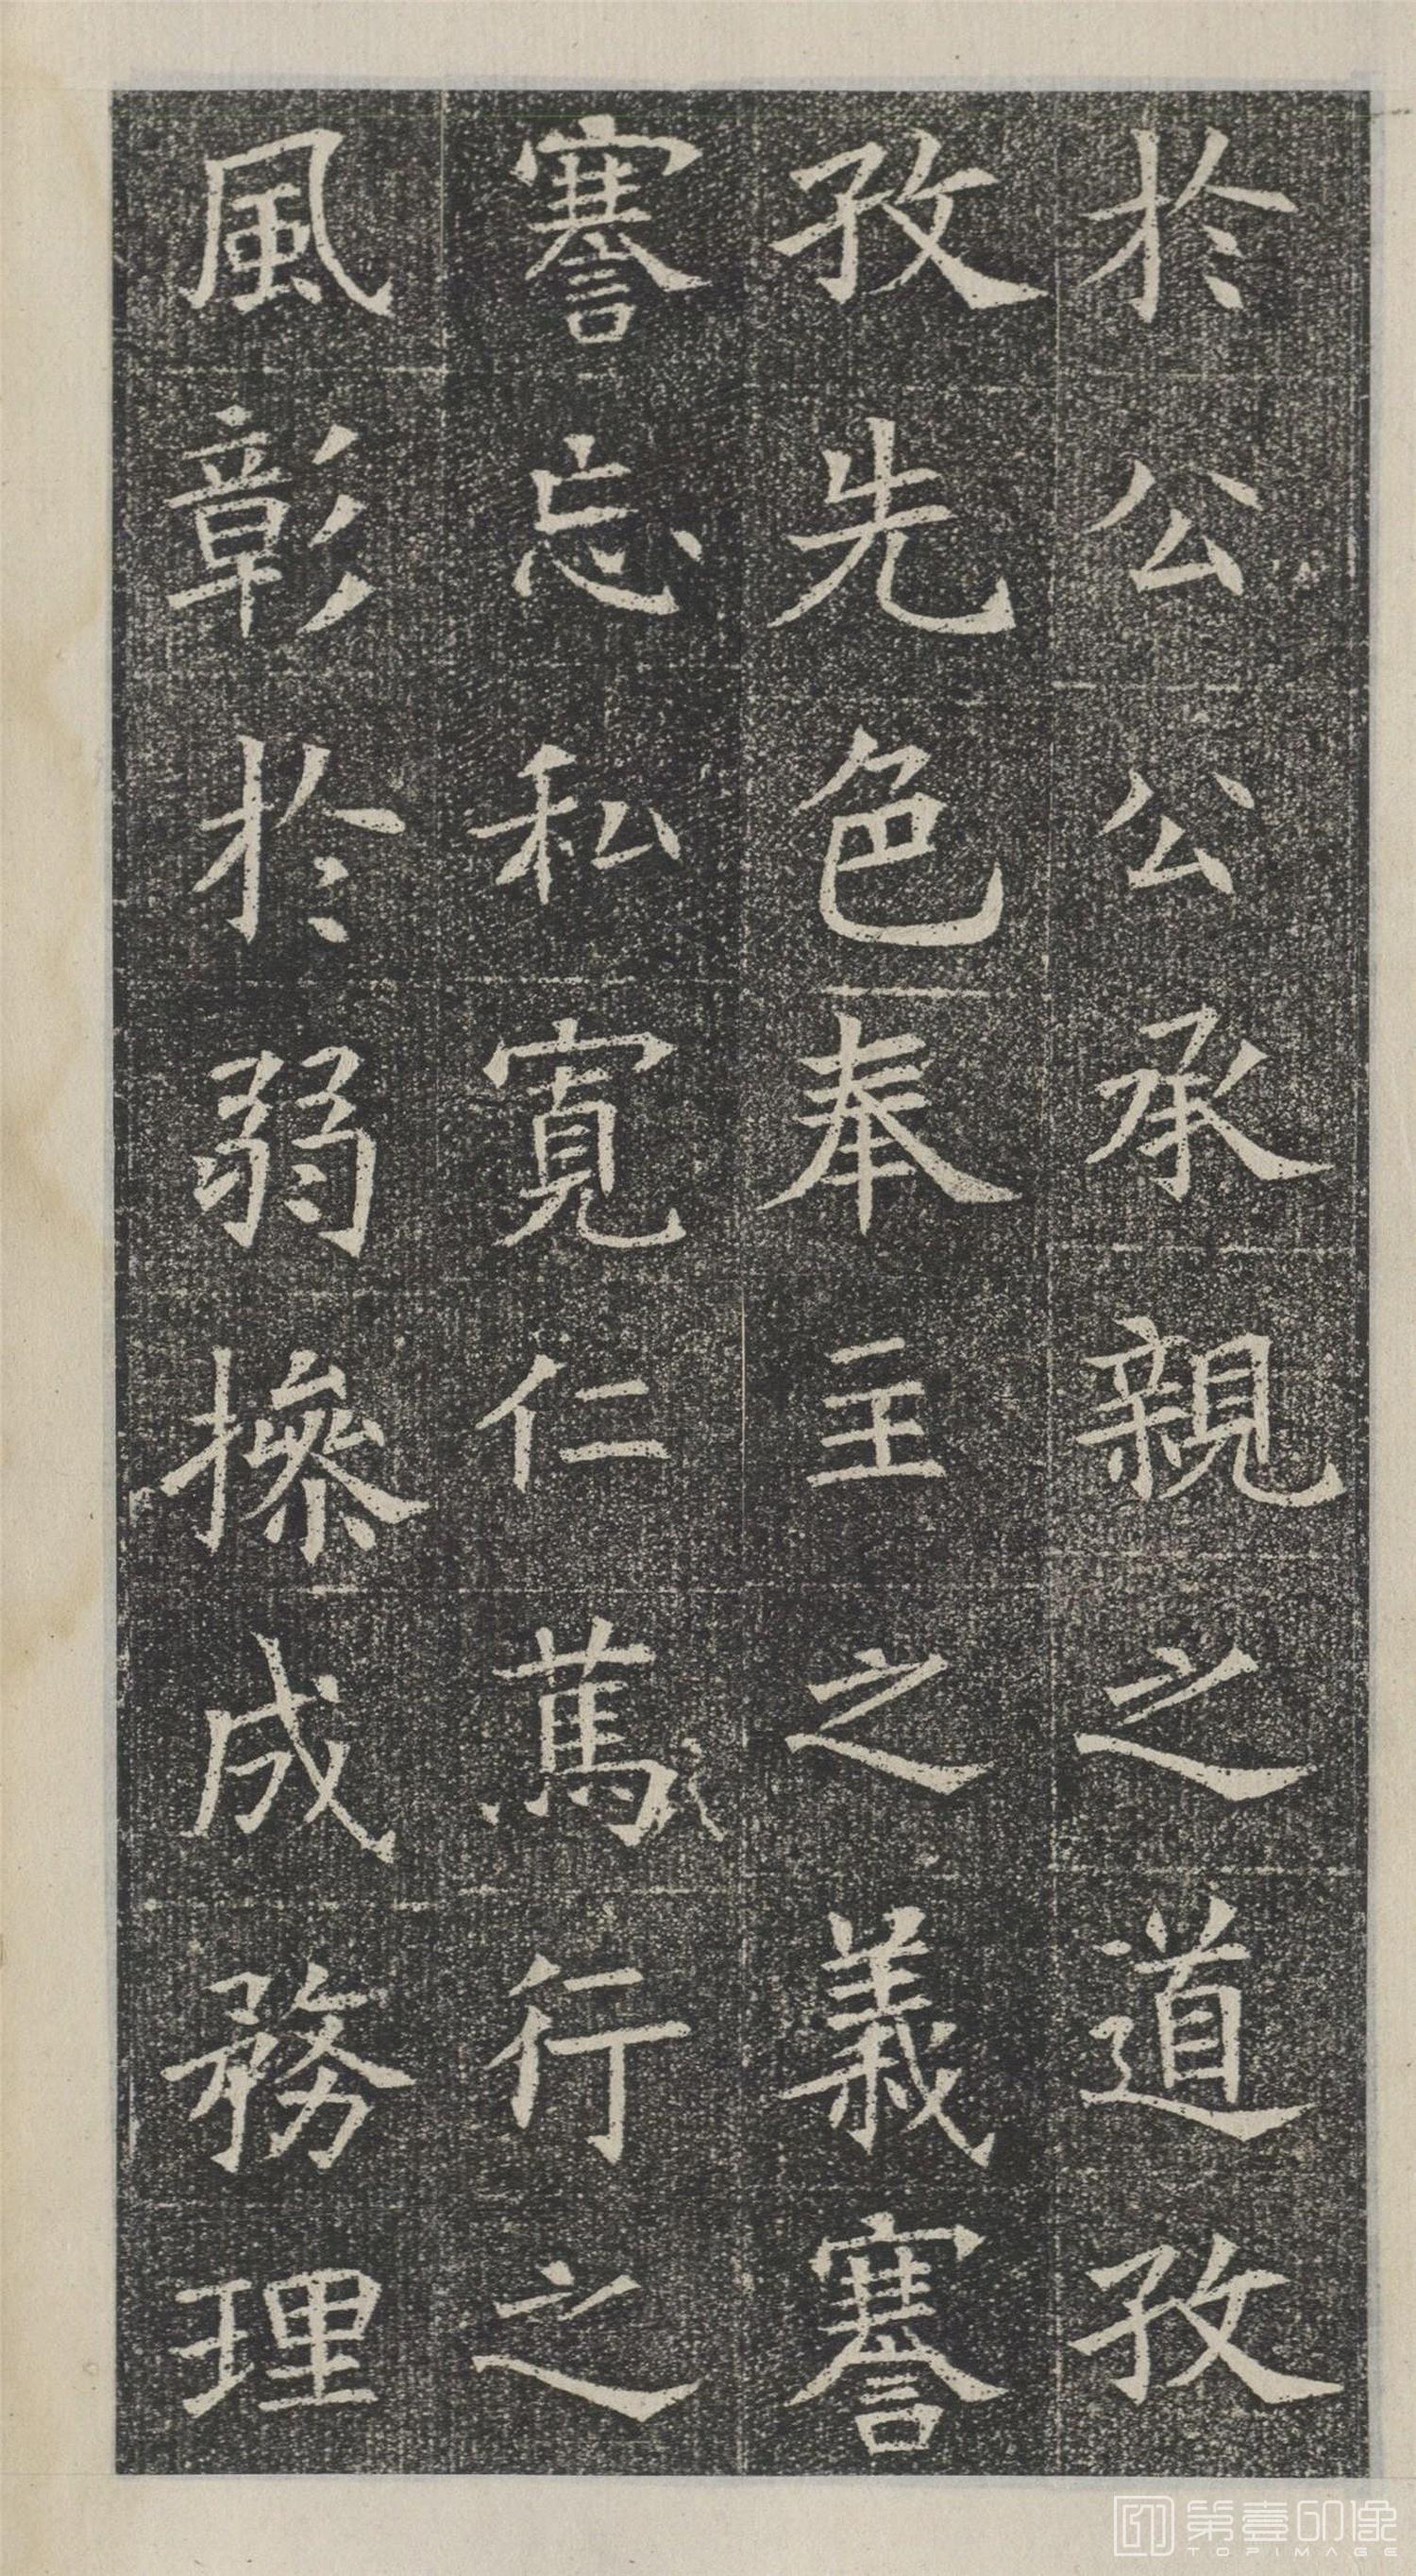 於公公承親之道孜
孜先色奉主之義謇
謇忘私寬仁篤行之
風彰於弱操成務理
第壹印像
TOPIMAGE